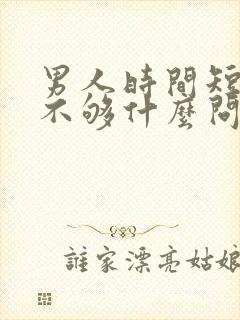 男人時間短
不够什麼問
誰家漂亮姑娘